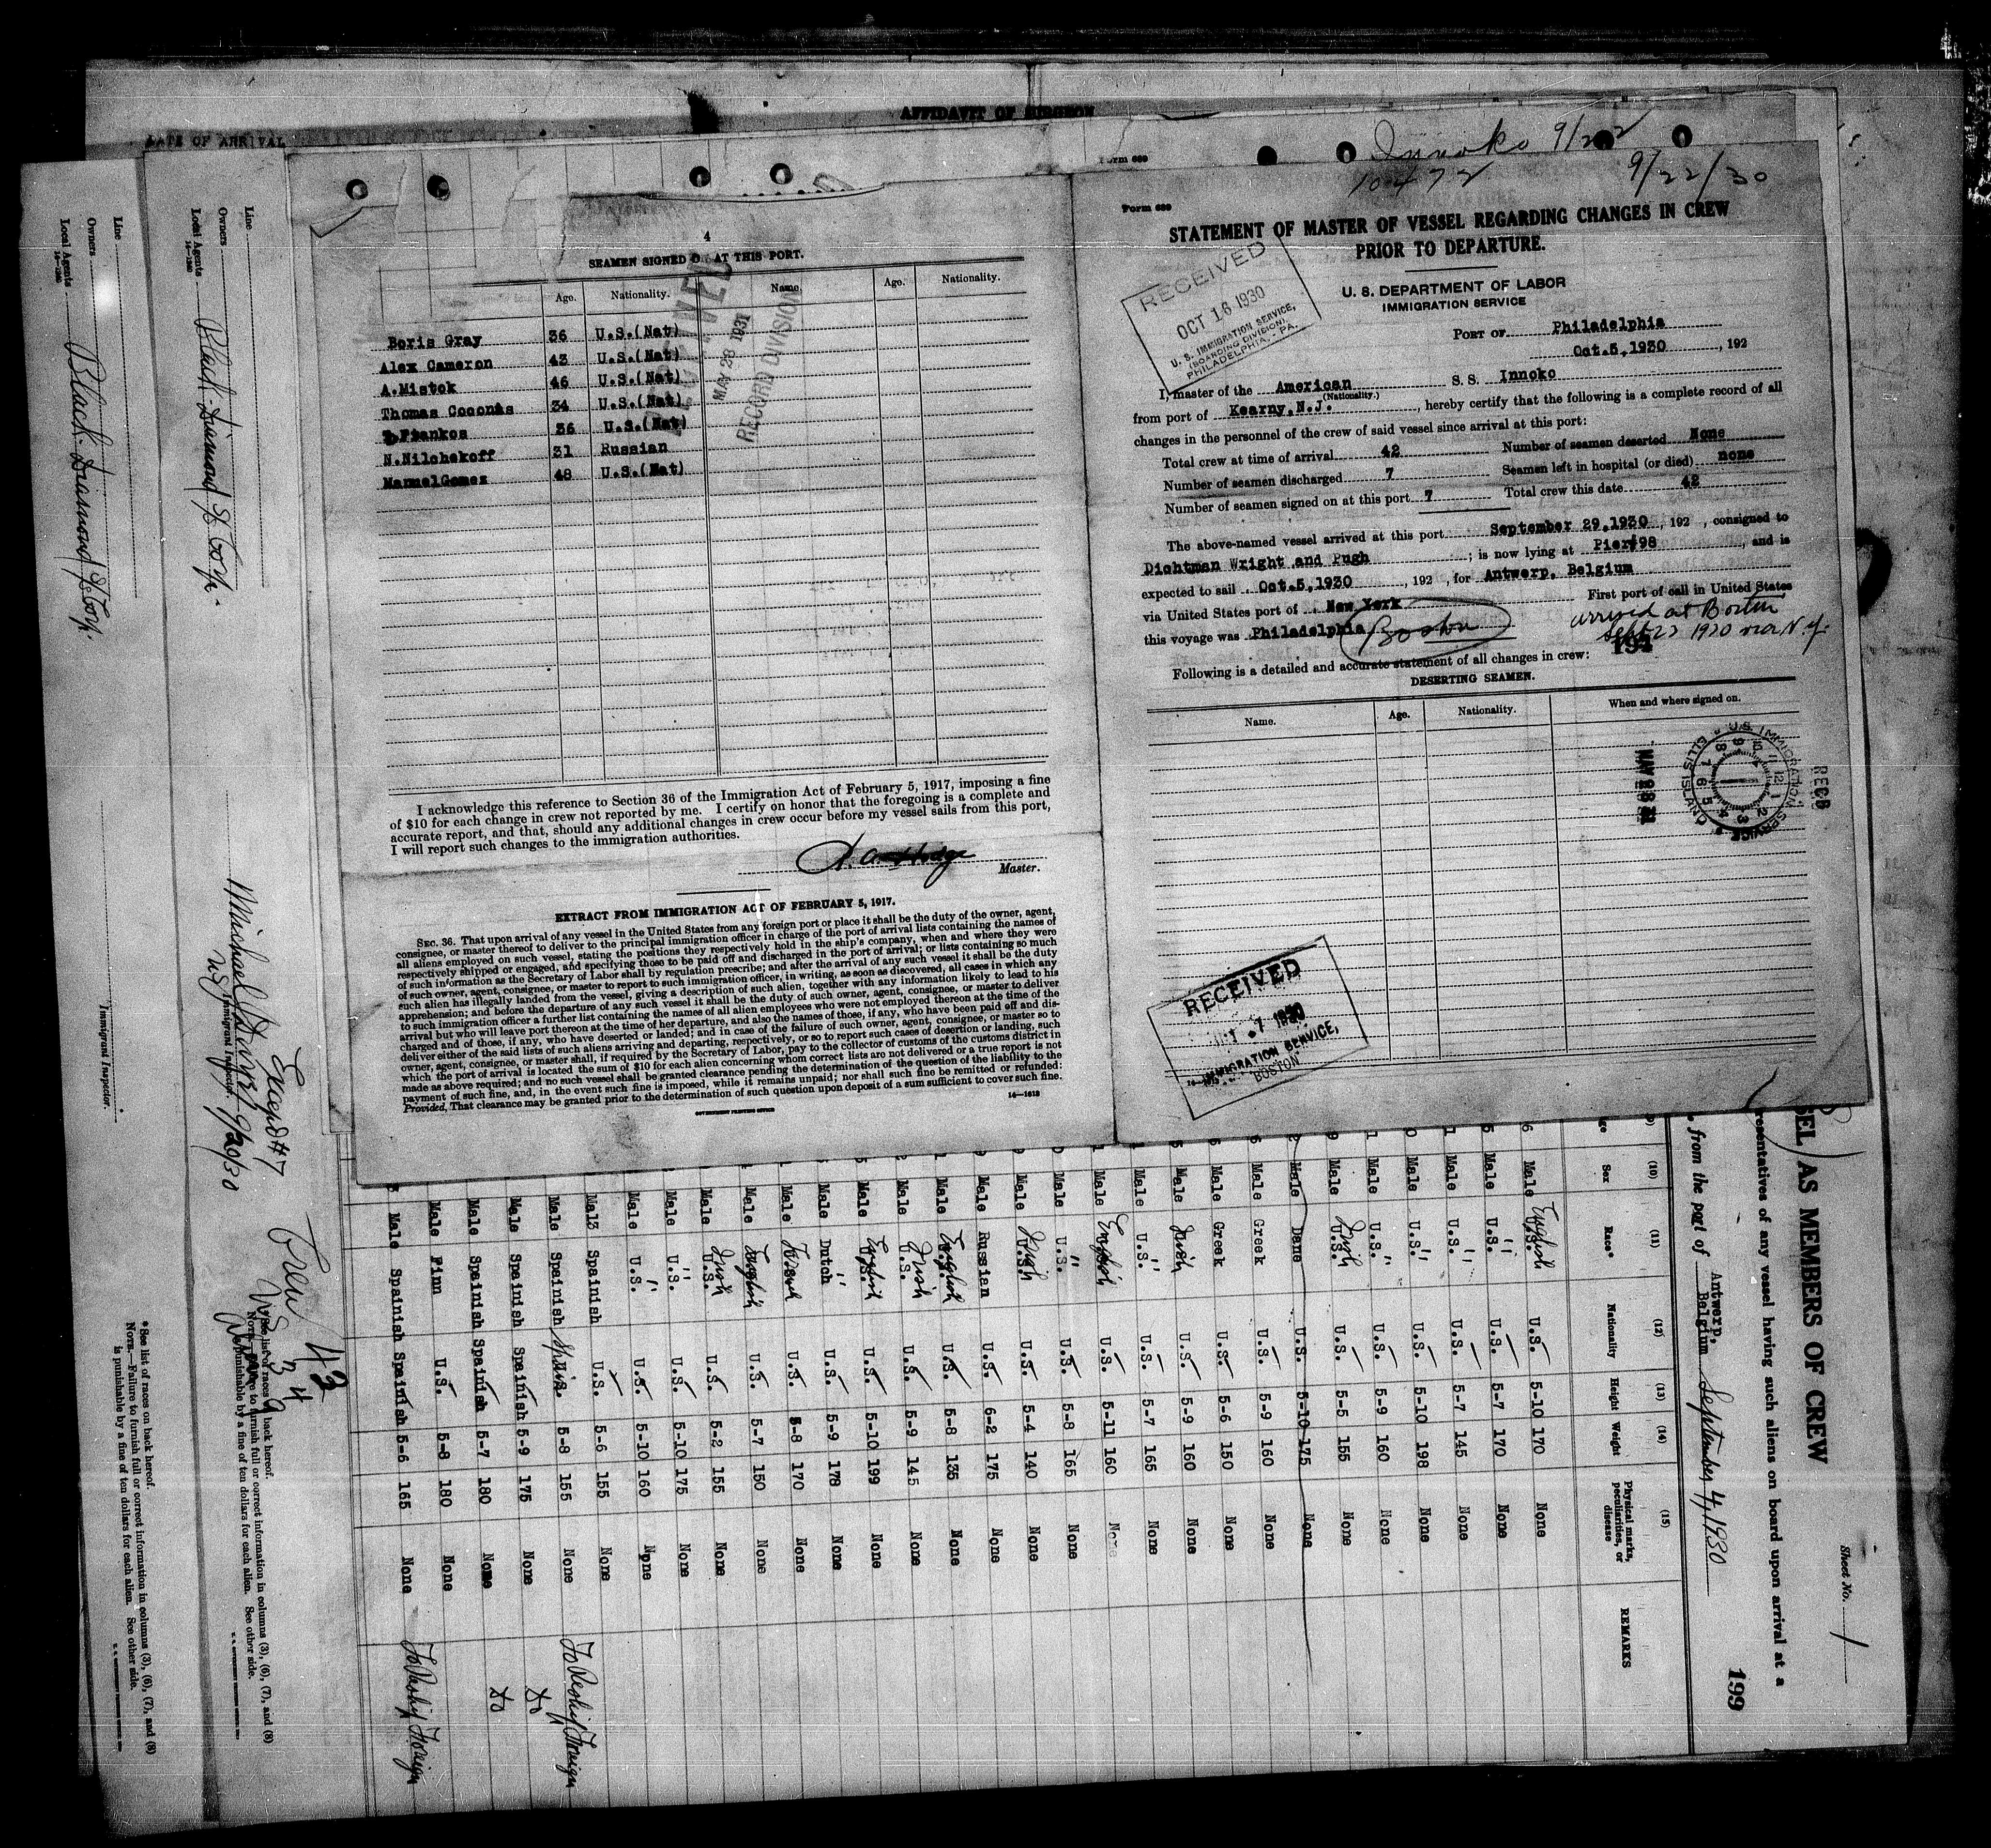 AFFIDAVIT OF SURGEON
DATE OF ARRIVAL
4
SEAMEN SIGNED AT THIS PORT.
Age. Nationality. Name. Age. Nationality.
Boris Gray 36 U.S.(Nat)
Alex Cameron 43 U.S.(Nat)
A.Mistok 46 U.S.(Nat)
Thomas Coconis 34 U.S.(Nat)
36 U.S.(Nat)
N.Nilchekoff 31 Russian
Manuel Gomez 48 U.S.(Nat)
MAY 28 1931
RECORD DIVISION
I acknowledge this reference to Section 36 of the Immigration Act of February 5, 1917, imposing a fine
of $10 for each change in crew not reported by me. I certify on honor that the foregoing is a complete and
accurate report, and that, should any additional changes in crew occur before my vessel sails from this port,
I will report such changes to the immigration authorities.
Master.
EXTRACT FROM IMMIGRATION ACT OF FEBRUARY 5, 1917.
SEC. 36. That upon arrival of any vessel in the United States from any foreign port or place it shall be the duty of the owner, agent,
consignee, or master thereof to deliver to the principal immigration officer in charge of the port of arrival lists containing the names of
all aliens employed on such vessel, stating the positions they respectively hold in the ship's company, when and where they were
respectively shipped or engaged, and specifying those to be paid off and discharged in the port of arrival; or lists containing so much
of such information as the Secretary of Labor shall by regulation prescribe; and after the arrival of any such vessel it shall be the duty
of such owner, agent, consignee, or master to report to such immigration officer, in writing, as soon as discovered, all cases in which any
such alien has illegally landed from the vessel, giving a description of such alien, together with any information likely to lead to his
apprehension; and before the departure of any such vessel it shall be the duty of such owner, agent, consignee, or master to deliver
to such immigration officer a further list containing the names of all alien employees who were not employed thereon at the time of the
arrival but who will leave port thereon at the time of her departure, and also the names of those, if any, who have been paid off and dis-
charged and of those, if any, who have deserted or landed; and in case of the failure of such owner, agent, consignee, or master so to
deliver either of the said lists of such aliens arriving and departing, respectively, or so to report such cases of desertion or landing, such
owner, agent, consignee, or master shall, if required by the Secretary of Labor, pay to the collector of customs of the customs district in
which the port of arrival is located the sum of $10 for each alien concerning whom correct lists are not delivered or a true report is not
made as above required; and no such vessel shall be granted clearance pending the determination of the question of the liability to the
payment of such fine, and, in the event such fine is imposed, while it remains unpaid; nor shall such fine be remitted or refunded:
Provided, That clearance may be granted prior to the determination of such question upon deposit of a sum sufficient to cover such fine.
GOVERNMENT PRINTING OFFICE 14—1612
Innoko 9/22
10472
9/22/30
Form 689
STATEMENT OF MASTER OF VESSEL REGARDING CHANGES IN CREW
PRIOR TO DEPARTURE.
U. S. DEPARTMENT OF LABOR
IMMIGRATION SERVICE
RECEIVED
OCT 16 1930
U. S. IMMIGRATION SERVICE,
(BOARDING DIVISION)
PHILADELPHIA, PA.
PORT OF Philadelphia
Oct.5,1930, 192
I, master of the American S. S. Innoko
(Nationality.)
from port of Kearny,N.J., hereby certify that the following is a complete record of all
changes in the personnel of the crew of said vessel since arrival at this port:
Total crew at time of arrival 42 Number of seamen deserted None
Number of seamen discharged 7 Seamen left in hospital (or died) none
Number of seamen signed on at this port 7 Total crew this date 42
The above-named vessel arrived at this port September 29,1930, 192 , consigned to
Dichtman Wright and Pugh ; is now lying at Pier#98, and is
expected to sail Oct.5,1930, 192 , for Antwerp, Belgium
via United States port of New York First port of call in United States
this voyage was Philadelphia Boston
arrived at Boston
Sept 22 1930 via N.Y.
194
Following is a detailed and accurate statement of all changes in crew:
DESERTING SEAMEN.
Name. Age. Nationality. When and where signed on.
U.S. IMMIGRATION SERVICE ELLIS ISLAND
RECD
RECEIVED
IMMIGRATION SERVICE,
BOSTON
Sheet No. 1
199
AS MEMBERS OF CREW
resentatives of any vessel having such aliens on board upon arrival at a
from the port of Antwerp, Belgium September 4, 1930
(10) (11) (12) (13) (14) (15)
Sex Race* Nationality Height Weight Physical marks, peculiarities, or disease REMARKS
Male English U.S. 5-10 170 None
Male U.S. " U.S. 5-7 170 None
Male U.S. " U.S. 5-7 145 None
Male U.S. " U.S. 5-10 198 None
Male U.S. " U.S. 5-9 160 None
Male Irish U.S. 5-5 155 None
Male Dane U.S. 5-10 175 None
Male Greek U.S. 5-9 160 None
Male Greek U.S. 5-6 150 None
Male Irish U.S. 5-9 160 None
Male U.S. " U.S. 5-7 165 None
Male English U.S. 5-11 160 None
Male U.S. " U.S. 5-8 165 None
Male Irish U.S. 5-4 140 None
Male Russian U.S. 6-2 175 None
Male English U.S. 5-8 135 None
Male Irish U.S. 5-9 145 None
Male English U.S. 5-10 199 None
Male Dutch " U.S. 5-9 178 None
Male French U.S. 5-8 170 None
Male English U.S. 5-7 150 None
Male Irish U.S. 5-2 155 None
Male U.S. " U.S. 5-10 175 None
Male U.S. " U.S. 5-10 160 None
Mal3 Spainish U.S. 5-6 155 None
Male Spainish Spain. 5-8 155 None To Reship Foreign
Male Spainish Spainish 5-9 175 None do
Male Spainish Spainish 5-7 180 None do
Male Finn U.S. 5-8 180 None
Male Spainish Spainish 5-6 165 None To Reship Foreign
Line
Owners Black Diamond SS Corp.
Local Agents
Except #7
9/20/30
Immigrant Inspector.
Crew 43
US 34
*See list of races on back hereof.
NOTE.—Failure to furnish full or correct information in columns (3), (6), (7), and (8)
is punishable by a fine of ten dollars for each alien. See other side.
Line
Owners Black Diamond SS Corp.
Local Agents
Immigrant Inspector.
*See list of races on back hereof.
NOTE.—Failure to furnish full or correct information in columns (3), (6), (7), and (8)
is punishable by a fine of ten dollars for each alien. See other side.